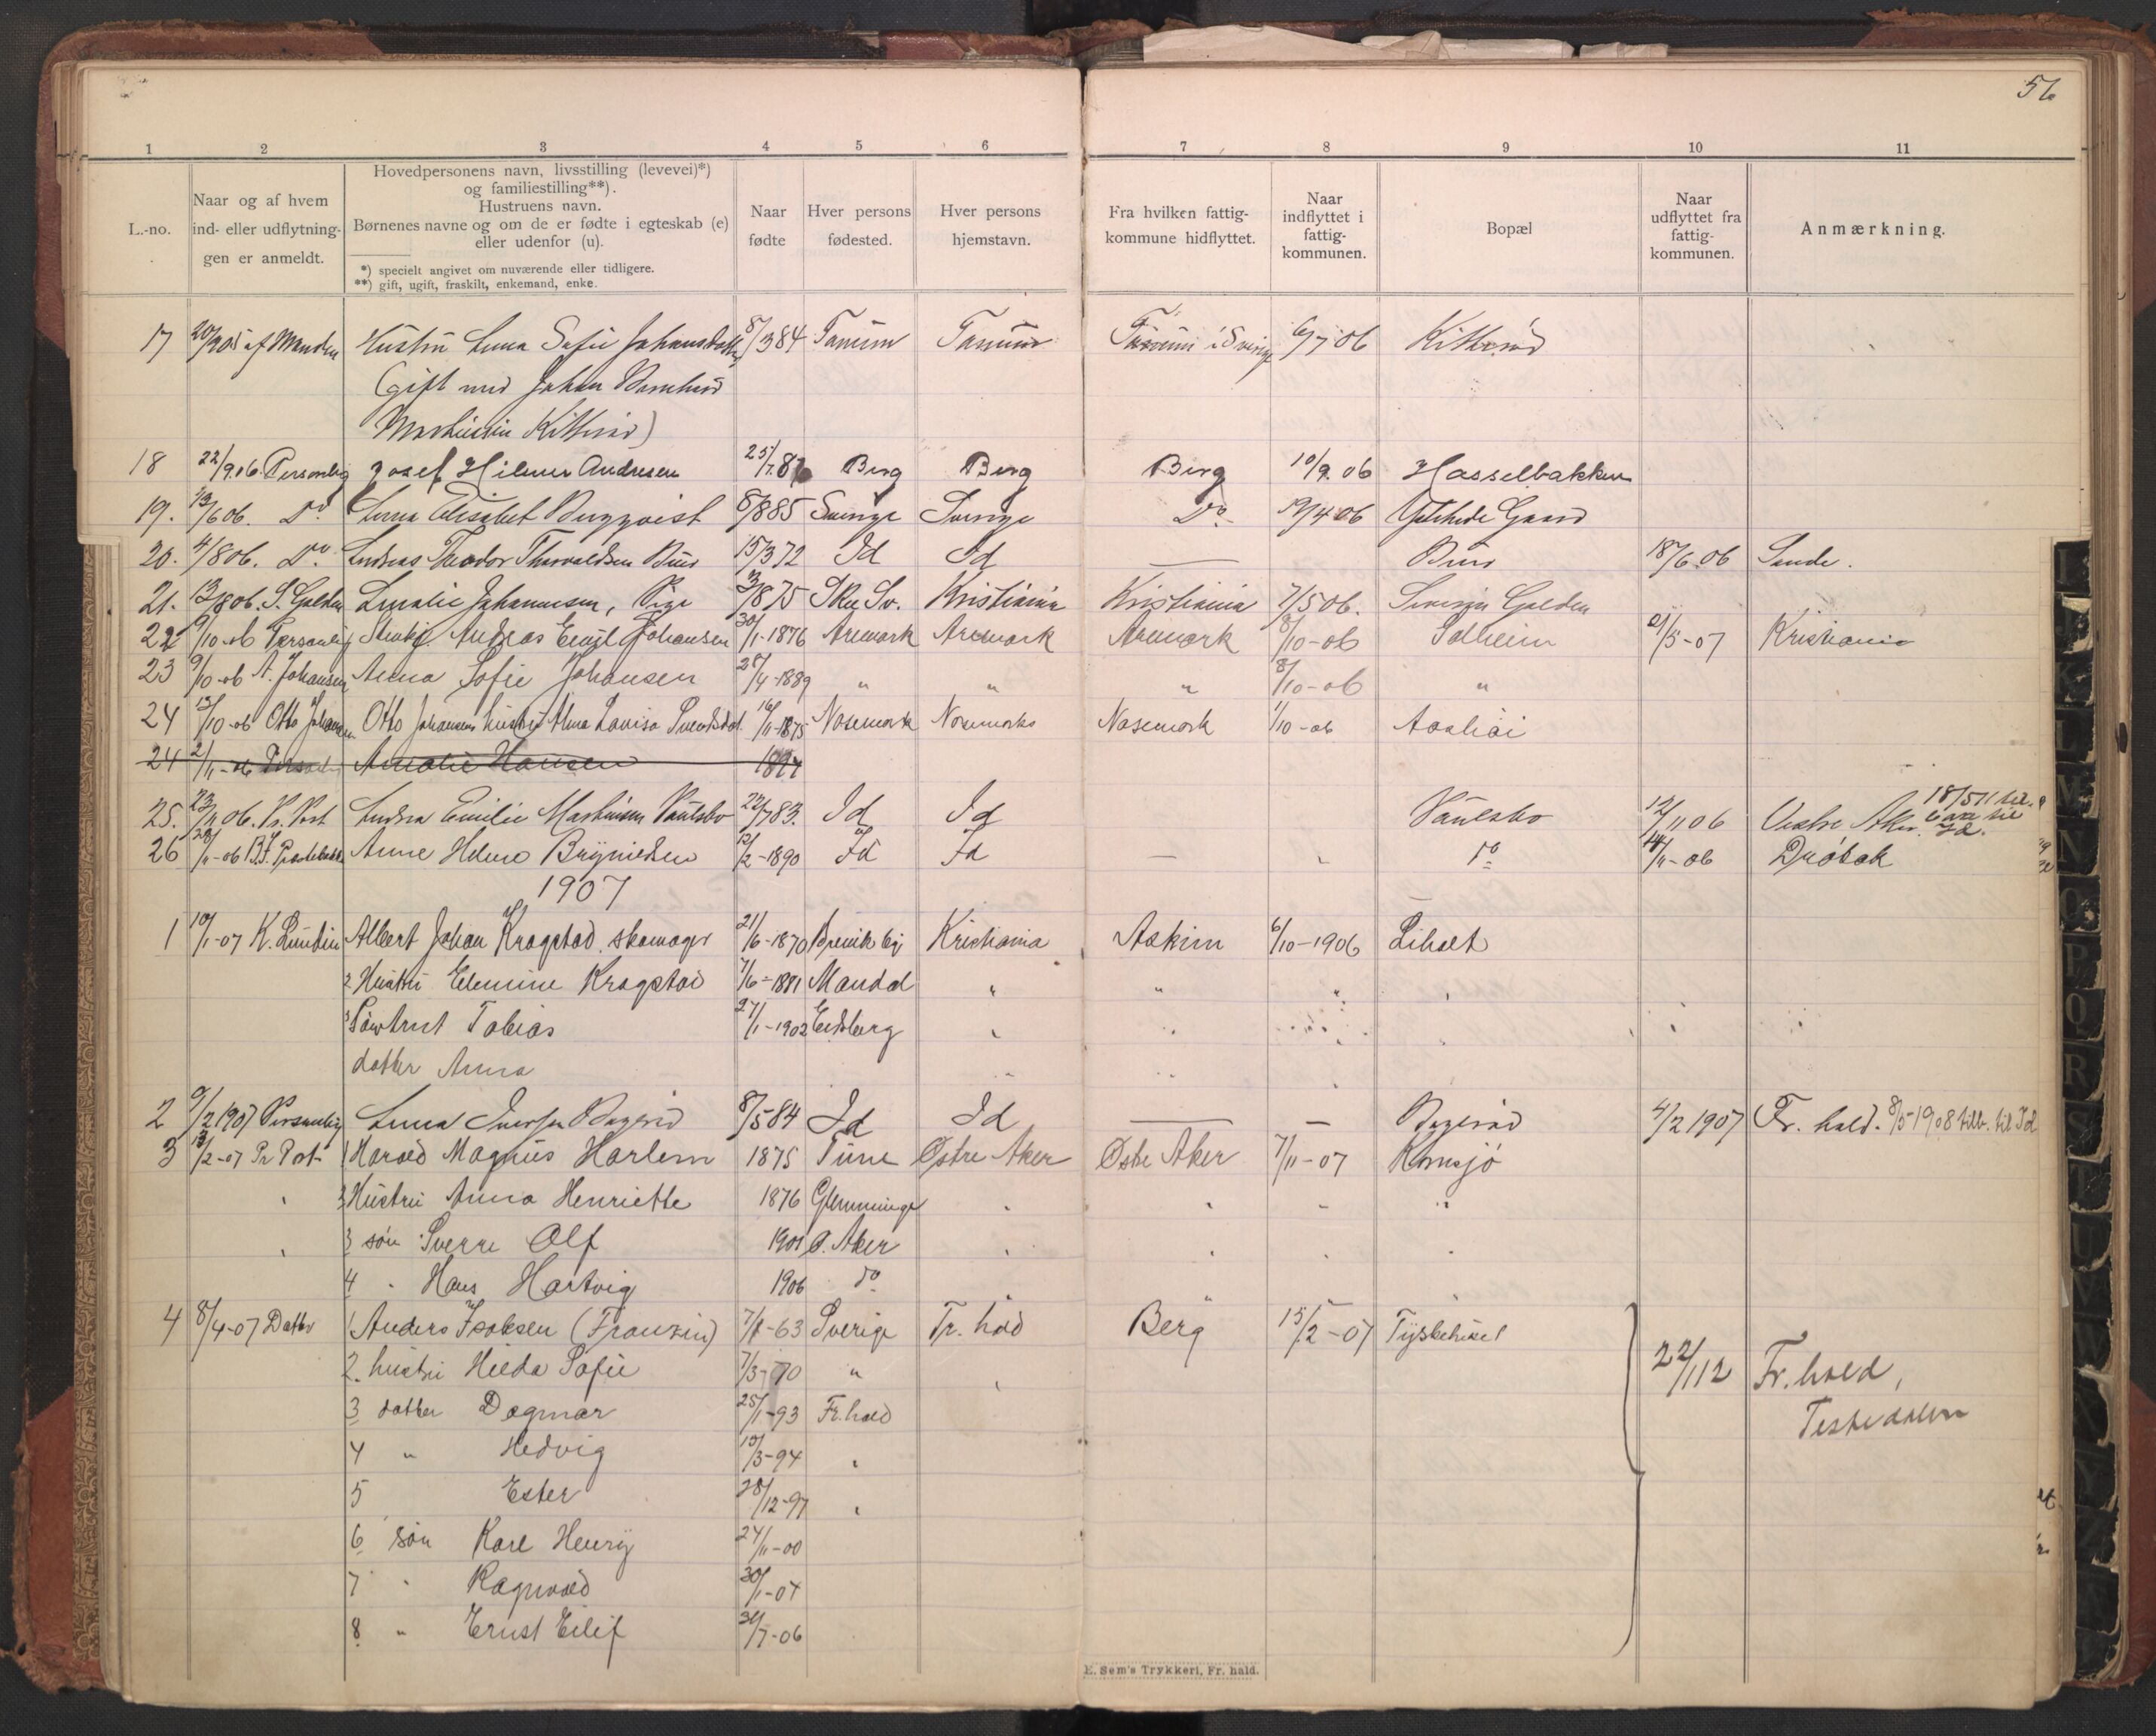 56
1 2 3 4 5 6 7 8 9 10 11
L.-no.
Naar og af hvem
ind- eller udflytning-
gen er anmeldt.
Hovedpersonens navn, livsstilling (levevei)*)
og familiestilling**).
Hustruens navn.
Børnenes navne og om de er fødte i egteskab (e)
eller udenfor (u).
*) specielt angivet om nuværende eller tidligere.
**) gift, ugift, fraskilt, enkemand, enke.
Naar
fødte
Hver persons
fødested.
Hver persons
hjemstavn.
Fra hvilken fattig-
kommune hidflyttet.
Naar
indflyttet i
fattig-
kommunen.
Bopæl
Naar
udflyttet fra
fattig-
kommunen.
Anmærkning.
17 af Manden Hustru Anna Sofie Johansdatter 8/3 84 Tanum Tanum Tanum i Sverige 6/7 06 Kitterød
(gift med Johan
Kitterød)
18 22/9.06. Personlig Josef Hilmer Andresen 25/7.87 Berg Berg Berg 10/9.06 Hasselbakken
19. 13/6 06. Do. Anna Elisabet Bergqvist 8/8 85 Sverige Sverige Do. 19/4 06 Gaard
20. 4/8 06. Do. Andreas Theodor Thorvaldsen 15/3 72 Id Id — 18/6 06 Sande.
21. 13/8 06. S. Golden Amalie Johannesen, Pige 3/8 75 Kristiania Kristiania 7/5 06. Severin Golden
22 9/10-06 Personlig Andreas Emil Johansen 30/1-1876 Aremark Aremark Aremark 8/10-06 Solheim 21/5-07 Kristiania
23 9/10-06 A. Johansen Anna Sofie Johansen 28/4-1889 " " " 8/10-06 "
24 13/10-06 Otto Johansen Otto Johansens hustru Alma Lovisa 16/11-1875 Nosemark Nosemark Nosemark 1/10-06
24 2/11-06 Amalie Hansen 1897
25. 23/11 06. Pr. Post Andrea Emilie Martinsen 22/7 83. Id Id 12/11 06 Vestre Aker. 18/5 11 Id.
26 Anne Helene Brynildsen 12/2-1890 Id Id — " do 14/11-06 Drøbak
1907
1 10/1-07 K. Lundin Albert Johan Kragstad. skomager 21/6-1870 Kristiania Askim 6/10-1906 Liholt
2 Hustru Elemine Kragstad 7/6-1881 Mandal " " " "
3 Tobias 27/1-1902 Eidsberg " " "
datter Anna " "
2 9/2 1907 Personlig Anna 8/5 84 Id Id — — 4/2 1907 Fr. hald. 8/5 1908 tilb. til Id
3 13/2-07 Pr Post 1 Harald Magnus Harlem 1875 Tune Østre Aker Østre Aker 7/11-07 Kornsjø
" 2 Hustru Anna Henriette 1876 Glemminge " " " "
" 3 søn Sverre Alf 1901 Ø. Aker " " " "
4 " Hans Hartvig 1906 do "
4 8/4-07 Datter 1 Anders Isaksen (Franzen) 7/8-63 Sverige Fr. hald Berg 15/2-07 Tyskehuset
2. hustru Hilda Sofie 7/3-70 " " 22/1 12 Fr. hald,
3 datter Dagmar 25/1-93 Fr. hald
4 " Hedvig 15/3-94 "
5 Ester 28/12-97 "
6 søn Karl Henry 24/11-00
7 " Ragnvald 30/1-04
8 " Ernst Eilif 31/7-06
E. Sem's Trykkeri, Fr. hald.